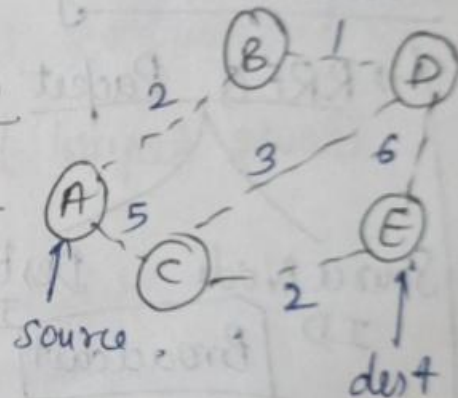 B 1 D
2
3 6
A 5
C E
2
source
dest